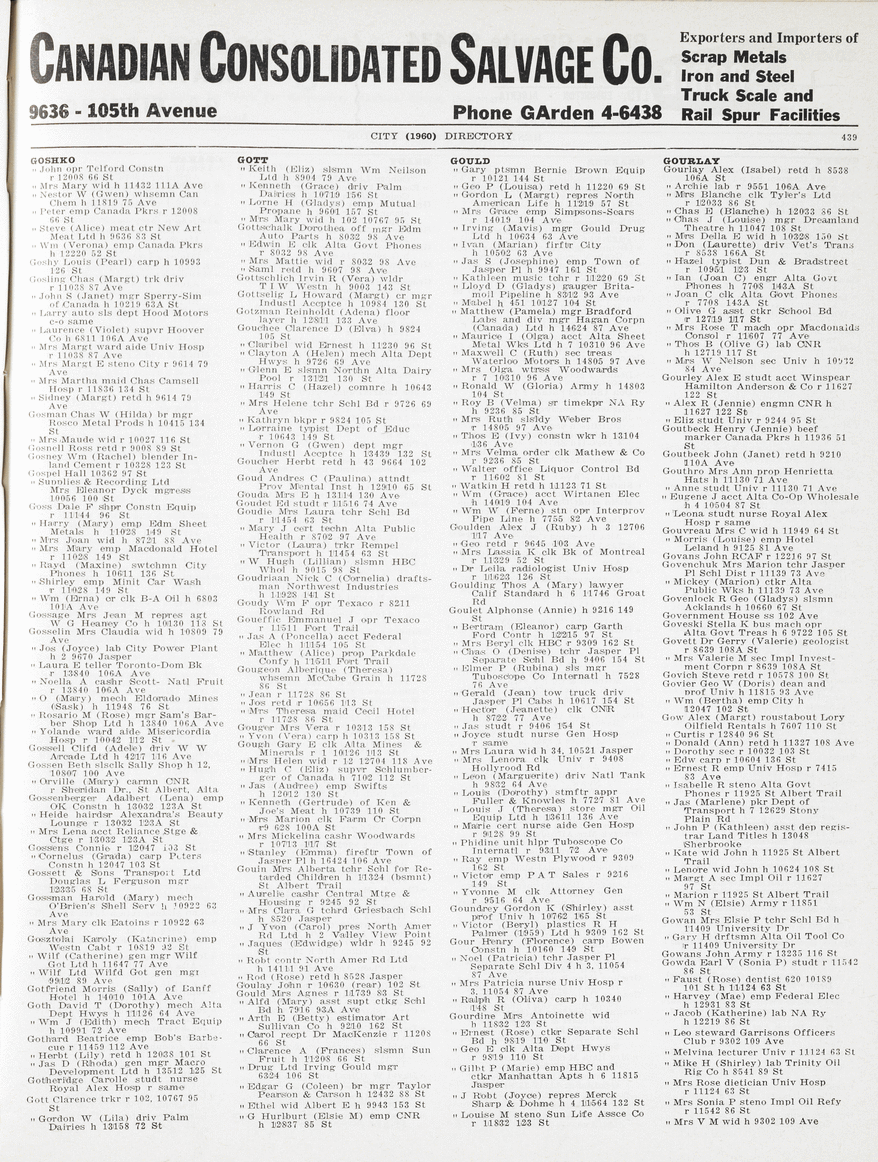 CANADIAN CONSOLIDATED SALVAGE CO.
9636 - 105th Avenue
Phone GArden 4-6438
Exporters and Importers of
Scrap Metals
Iron and Steel
Truck Scale and
Rail Spur Facilities
CITY (1960) DIRECTORY
439
GOSHKO
" John opr Telford Constn
r 12008 66 St
" Mrs Mary wid h 11432 111A Ave
" Nestor W (Gwen) whsemn Can
Chem h 11819 75 Ave
" Peter emp Canada Pkrs r 12008
66 St
" Steve (Alice) meat ctr New Art
Meat Ltd h 9636 83 St
" Wm (Verona) emp Canada Pkrs
h 12220 52 St
Goshy Louis (Pearl) carp h 10993
126 St
Gosling Chas (Margt) trk driv
r 11038 87 Ave
" John S (Janet) mgr Sperry-Sim
of Canada h 10219 63A St
" Larry auto sls dept Hood Motors
c-o same
" Laurence (Violet) supvr Hoover
Co h 6811 106A Ave
" Mrs Margt ward aide Univ Hosp
r 11038 87 Ave
" Mrs Margt E steno City r 9614 79
Ave
" Mrs Martha maid Chas Camsell
Hosp r 11836 134 St
" Sidney (Margt) retd h 9614 79
Ave
Gosman Chas W (Hilda) br mgr
Rosco Metal Prods h 10415 134
St
" Mrs Maude wid r 10027 116 St
Gosnell Ross retd r 9008 89 St
Gosney Wm (Rachel) blender In-
land Cement r 10328 123 St
Gospel Hall 10362 97 St
" Supplies & Recording Ltd
Mrs Eleanor Dyck mgress
10056 100 St
Goss Dale F shpr Constn Equip
r 11144 96 St
" Harry (Mary) emp Edm Sheet
Metals h 11028 149 St
" Mrs Joan wid h 8721 88 Ave
" Mrs Mary emp Macdonald Hotel
r 11028 149 St
" Rayd (Maxine) swtchmn City
Phones h 10611 126 St
" Shirley emp Minit Car Wash
r 11028 149 St
" Wm (Erna) otr clk B-A Oil h 6803
101A Ave
Gossage Mrs Jean M repres agt
W G Heaney Co h 10130 113 St
Gosselin Mrs Claudia wid h 10809 79
Ave
" Jos (Joyce) lab City Power Plant
h 2 9670 Jasper
" Laura E teller Toronto-Dom Bk
r 13840 106A Ave
" Noella A cashr Scott- Natl Fruit
r 13840 106A Ave
" O (Mary) mech Eldorado Mines
(Sask) h 11948 76 St
" Rosario M (Rose) mgr Sam's Bar-
ber Shop Ltd h 13840 106A Ave
" Yolande ward aide Misericordia
Hosp r 10042 112 St
Gossell Clifd (Adele) driv W W
Arcade Ltd h 4217 116 Ave
Gossen Beth slsclk Sally Shop h 12,
10807 100 Ave
" Orville (Mary) carmn CNR
r Sheridan Dr., St Albert, Alta
Gossenberger Adalbert (Lena) emp
OK Constn h 13032 123A St
" Heide hairdsr Alexandra's Beauty
Lounge r 13032 123A St
" Mrs Lena acct Reliance Stge &
Ctge r 13032 123A St
Gossens Connie r 12047 103 St
" Cornelus (Grada) carp Peters
Constn h 12047 103 St
Gossett & Sons Transport Ltd
Douglas L Ferguson mgr
12335 68 St
Gossman Harold (Mary) mech
O'Brien's Shell Serv h 10922 63
Ave
" Mrs Mary clk Eatoins r 10922 63
Ave
Gosztolai Karoly (Katacrine) emp
Westn Cabt r 10819 92 St
" Wilf (Catherine) gen mgr Wilf
Got Ltd h 11647 77 Ave
" Wilf Ltd Wilfd Got gen mgr
9912 89 Ave
Gotfriend Morris (Sally) of Lanff
Hotel h 14010 101A Ave
Goth David T (Dorothy) mech Alta
Dept Hwys h 11126 64 Ave
" Wm J (Edith) mech Tract Equip
h 10991 72 Ave
Gothard Beatrice emp Bob's Barbe-
cue r 11459 112 Ave
" Herbt (Lily) retd h 12038 101 St
" Jas D (Rhoda) gen mgr Macro
Development Ltd h 13512 125 St
Gotheridge Carolle studt nurse
Royal Alex Hosp r same
Gott Clarence trkr r 102, 10767 95
St
" Gordon W (Lila) driv Palm
Dairies h 13158 72 St
GOTT
" Keith (Eliz) slsmn Wm Neilson
Ltd h 8904 79 Ave
" Kenneth (Grace) driv Palm
Dairies h 10719 156 St
" Lorne H (Gladys) emp Mutual
Propane h 9601 157 St
" Mrs Mary wid h 102 10767 95 St
Gottschalk Dorothea off mgr Edm
Auto Parts h 8032 98 Ave
" Edwin E clk Alta Govt Phones
r 8032 98 Ave
" Mrs Mattie wid r 8032 98 Ave
" Saml retd h 9607 98 Ave
Gottschlich Irvin R (Vera) wldr
T I W Westn h 9003 143 St
Gottselig L Howard (Margt) cr mgr
Industl Acceptce h 10984 130 St
Gotzman Reinholdt (Adena) floor
layer h 12811 133 Ave
Gouchee Clarence D (Elva) h 9824
105 St
" Claribel wid Ernest h 11230 96 St
" Clayton A (Helen) mech Alta Dept
Hwys h 9726 69 Ave
" Glenn E slsmn Northn Alta Dairy
Pool r 13121 130 St
" Harris C (Hazel) comnre h 10643
149 St
" Mrs Helene tchr Schl Bd r 9726 69
Ave
" Kathryn bkpr r 9824 105 St
" Lorraine typist Dept of Educ
r 10643 149 St
" Vernon G (Gwen) dept mgr
Industl Accptce h 13439 132 St
Goucher Herbt retd h 43 9664 102
Ave
Goud Andres C (Paulina) attndt
Prov Mental Inst h 12910 65 St
Gouda Mrs E h 13114 130 Ave
Goudel Ed studt r 11516 74 Ave
Goudie Mrs Laura tchr Schl Bd
r 11454 63 St
" Mary J cert techn Alta Public
Health r 8702 97 Ave
" Victor (Laura) trkg Rempel
Transport h 11454 63 St
" W Hugh (Lillian) slsmn HBC
Whol h 9015 98 St
Goudriaan Nick C (Cornelia) drafts-
man Northwest Industries
h 11928 141 St
Goudy Wm F opr Texaco r 8211
Rowland Rd
Goueffic Emmanuel J opr Texaco
r 11511 Fort Trail
" Jas A (Poncella) acct Federal
Elec h 11154 105 St
" Matthew (Alice) prop Parkdale
Confy h 11511 Fort Trail
Gougeon Alberique (Theresa)
whsemn McCabe Grain h 11728
86 St
" Jean r 11728 86 St
" Jos retd r 10656 113 St
" Mrs Theresa maid Cecil Hotel
r 11728 86 St
Gouger Mrs Vera r 10313 158 St
" Yvon (Vera) carp h 10313 158 St
Gough Gary E clk Alta Mines &
Minerals r 1 10126 113 St
" Mrs Helen wid r 12 12704 118 Ave
" Hugh C (Eliz) supvr Schlumber-
ger of Canada h 7102 112 St
" Jas (Audree) emp Swifts
h 12012 130 St
" Kenneth (Gertrude) of Ken &
Joe's Meat h 10739 110 St
" Mrs Marion clk Farm Cr Corpn
r9 628 100A St
" Mrs Mickelina cashr Woodwards
r 10713 117 St
" Stanley (Emma) fireftr Town of
Jasper Pl h 16424 106 Ave
Gouin Mrs Alberta tchr Schl for Re-
tarded Children h 11324 (bsmnt)
St Albert Trail
" Aurelie cashr Central Mtge &
Housing r 9245 92 St
" Mrs Clara G tchrd Griesbach Schl
h 8520 Jasper
" J Yvon (Carol) pres North Amer
Rd Ltd h 2 Valley View Point
" Jaques (Edwidge) wldr h 9245 92
St
" Robt contr North Amer Rd Ltd
h 14111 91 Ave
" Rod (Rose) retd h 8528 Jasper
Goulay John r 10630 (rear) 102 St
Gould Mrs Agnes r 11739 83 St
" Alfd (Mary) asst supt ctkg Schl
Bd h 7916 93A Ave
" Arth E (Betty) estimator Art
Sullivan Co h 9210 162 St
" Carol recpt Dr MacKenzie r 11208
66 St
" Clarence A (Frances) slsmn Sun
Fruit h 11208 66 St
" Drug Ltd Irving Gould mgr
6324 106 St
" Edgar G (Coleen) br mgr Taylor
Pearson & Carson h 12432 88 St
" Ethel wid Albert E h 9943 153 St
" G Hurlburt (Elsie M) emp CNR
h 12837 85 St
GOULD
" Gary ptsmn Bernie Brown Equip
r 10121 144 St
" Geo P (Louisa) retd h 11220 69 St
" Gordon L (Margt) repres North
American Life h 11219 57 St
" Mrs Grace emp Simpsons-Sears
r 14019 104 Ave
" Irving (Mavis) mgr Gould Drug
Ltd h 10634 63 Ave
" Ivan (Marian) firftr City
h 10502 63 Ave
" Jas S (Josephine) emp Town of
Jasper Pl h 9947 161 St
" Kathleen music tchr r 11220 69 St
" Lloyd D (Gladys) gauger Brita-
moil Pipeline h 8312 93 Ave
" Mabel h 451 10127 104 St
" Matthew (Pamela) mgr Bradford
Labs and div mgr Hagan Corpn
(Canada) Ltd h 14624 87 Ave
" Maurice I (Olga) acct Alta Sheet
Metal Wks Ltd h 7 10310 96 Ave
" Maxwell C (Ruth) sec treas
Waterloo Motors h 14805 97 Ave
" Mrs Olga wtrss Woodwards
r 7 10310 96 Ave
" Ronald W (Gloria) Army h 14803
104 St
" Roy B (Velma) sr timekpr NA Ry
h 9236 85 St
" Mrs Ruth slsldy Weber Bros
r 14805 97 Ave
" Thos E (Ivy) constn wkr h 13104
136 Ave
" Mrs Velma order clk Mathew & Co
r 9236 85 St
" Walter office Liquor Control Bd
r 11602 81 St
" Watkin H retd h 11123 71 St
" Wm (Grace) acct Wirtanen Elec
h 14019 104 Ave
" Wm W (Ferne) stn opr Interprov
Pipe Line h 7755 82 Ave
Goulden Alex J (Ruby) h 3 12706
117 Ave
" Geo retd r 9645 103 Ave
" Mrs Lassia K clk Bk of Montreal
r 11329 52 St
" Dr Leila radiologist Univ Hosp
r 11623 126 St
Goulding Thos A (Mary) lawyer
Calif Standard h 6 11746 Groat
Rd
Goulet Alphonse (Annie) h 9216 149
St
" Bertram (Eleanor) carp Garth
Ford Contr h 12215 97 St
" Mrs Beryl clk HBC r 9309 162 St
" Chas O (Denise) tchr Jasper Pl
Separate Schl Bd h 9406 154 St
" Elmer P (Rubina) sls mgr
Tuboscope Co Internatl h 7528
76 Ave
" Gerald (Jean) tow truck driv
Jasper Pl Cabs h 10617 154 St
" Hector (Jeanette) clk CNR
h 8722 77 Ave
" Jas studt r 9406 154 St
" Joyce studt nurse Gen Hosp
r same
" Mrs Laura wid h 34, 10521 Jasper
" Mrs Lenora clk Univ r 9408
Hollyrood Rd
" Leon (Marguerite) driv Natl Tank
h 9832 64 Ave
" Louis (Dorothy) stmftr appr
Fuller & Knowles h 7727 81 Ave
" Louis J (Theresa) store mgr Oil
Equip Ltd h 13611 136 Ave
" Marie cert nurse aide Gen Hosp
r 9128 99 St
" Phidine unit hlpr Tuboscope Co
Internatl r 9311 72 Ave
" Ray emp Westn Plywood r 9309
162 St
" Victor emp P A T Sales r 9216
149 St
" Yvonne M clk Attorney Gen
r 9516 64 Ave
Goundrey Gordon K (Shirley) asst
prof Univ h 10762 165 St
" Victor (Beryl) plastics R H
Palmer (1959) Ltd h 9309 162 St
Gour Henry (Florence) carp Bowen
Constn h 10160 149 St
" Noel (Patricia) tchr Jasper Pl
Separate Schl Div 4 h 3, 11054
87 Ave
" Mrs Patricia nurse Univ Hosp r
3, 11054 87 Ave
" Ralph R (Oliva) carp h 10340
148 St
Gourdine Mrs Antoinette wid
h 11832 123 St
" Ernest (Rose) ctkr Separate Schl
Bd h 9819 110 St
" Geo E clk Alta Dept Hwys
r 9819 110 St
" Gilbt P (Marie) emp HBC and
ctkr Manhattan Apts h 6 11815
Jasper
" J Robt (Joyce) repres Merck
Sharp & Dohme h 4 11564 132 St
" Louise M steno Sun Life Assce Co
r 11832 123 St
GOURLAY
Gourlay Alex (Isabel) retd h 8538
106A St
" Archie lab r 9551 106A Ave
" Mrs Blanche clk Tyler's Ltd
r 12033 86 St
" Chas E (Blanche) h 12033 86 St
" Chas J (Louise) mgr Dreamland
Theatre h 11047 108 St
" Mrs Della E wid h 10328 150 St
" Don (Laurette) driv Vet's Trans
r 8538 166A St
" Hazel typist Dun & Bradstreet
r 10951 123 St
" Ian (Joan C) engr Alta Govt
Phones h 7708 143A St
" Joan C clk Alta Govt Phones
r 7708 143A St
" Olive G asst ctkr School Bd
r 12719 117 St
" Mrs Rose T mach opr Macdonalds
Consol r 11607 77 Ave
" Thos B (Olive G) lab CNR
h 12719 117 St
" Mrs W Nelson sec Univ h 10972
84 Ave
Gourley Alex E studt acct Winspear
Hamilton Anderson & Co r 11627
122 St
" Alex R (Jennie) engmn CNR h
11627 122 St
" Eliz studt Univ r 9244 95 St
Goutbeck Henry (Jennie) beef
marker Canada Pkrs h 11936 51
St
Goutbeek John (Janet) retd h 9210
110A Ave
Gouthro Mrs Ann prop Henrietta
Hats h 11130 71 Ave
" Anne studt Univ r 11130 71 Ave
" Eugene J acct Alta Co-Op Wholesale
h 4 10504 87 St
" Leona studt nurse Royal Alex
Hosp r same
Gouvreau Mrs C wid h 11949 64 St
" Morris (Louise) emp Hotel
Leland h 9125 81 Ave
Govans John RCAF r 12216 97 St
Govenchuk Mrs Marion tchr Jasper
Pl Schl Dist r 11139 73 Ave
" Mickey (Marion) ctkr Alta
Public Wks h 11139 73 Ave
Govenlock R Geo (Gladys) slsmn
Acklands h 10660 67 St
Government House ss 102 Ave
Goveski Stella K bus mach opr
Alta Govt Treas h 6 9722 105 St
Govett Dr Gerry (Valerie) geologist
r 8639 108A St
" Mrs Valerie M sec Impl Invest-
ment Corpn r 8639 108A St
Govich Steve retd r 10578 100 St
Govier Geo W (Doris) dean and
prof Univ h 11815 93 Ave
" Wm (Bertha) emp City h
12047 102 St
Gow Alex (Margt) roustabout Lory
Oilfield Rentals h 7607 110 St
" Curtis r 12840 96 St
" Donald (Ann) retd h 11327 108 Ave
" Dorothy sec r 10032 103 St
" Edw carp r 10604 136 St
" Ernest R emp Univ Hosp r 7415
83 Ave
" Isabelle R steno Alta Govt
Phones r 11925 St Albert Trail
" Jas (Marlene) pkr Dept of
Transport h 7 12629 Stony
Plain Rd
" John P (Kathleen) asst dep regis-
rar Land Titles h 13048
Sherbrooke
" Kate wid John h 11925 St Albert
Trail
" Lenore wid John h 10624 108 St
" Margt A sec Impl Oil r 11627
97 St
" Marion r 11925 St Albert Trail
" Wm N (Elsie) Army r 11851
53 St
Gowan Mrs Elsie P tchr Schl Bd h
11409 University Dr
" Gary H drftsmn Alta Oil Tool Co
r 11409 University Dr
Gowans John Army r 13235 116 St
Gowda Earl V (Sonia P) studt r 11542
86 St
" Faust (Rose) dentist 620 10189
101 St h 11124 63 St
" Harvey (Mae) emp Federal Elec
h 12931 83 St
" Jacob (Katherine) lab NA Ry
h 12219 86 St
" Leo steward Garrisons Officers
Club r 9302 109 Ave
" Melvina lecturer Univ r 11124 63 St
" Mike H (Shirley) lab Trinity Oil
Rig Co h 8541 89 St
" Mrs Rose dietician Univ Hosp
r 11124 63 St
" Mrs Sonia P steno Impl Oil Refy
r 11542 86 St
" Mrs V M wid h 9302 109 Ave